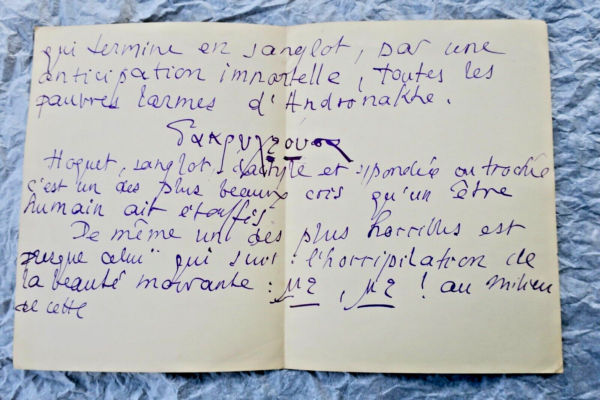 qui termine en sanglot, par une
anticipation immortelle, toutes les
pauvres larmes d'Andromakhe.
δακρυχεουσα
Hoquet, sanglot, dactyle et spondée ou trochée
c'est un des plus beaux cris qu'un être
humain ait étouffés.
De même un des plus horribles est
presque celui qui suit : l'horripilation de
la beauté mourante : μη, μη ! au milieu
de cette